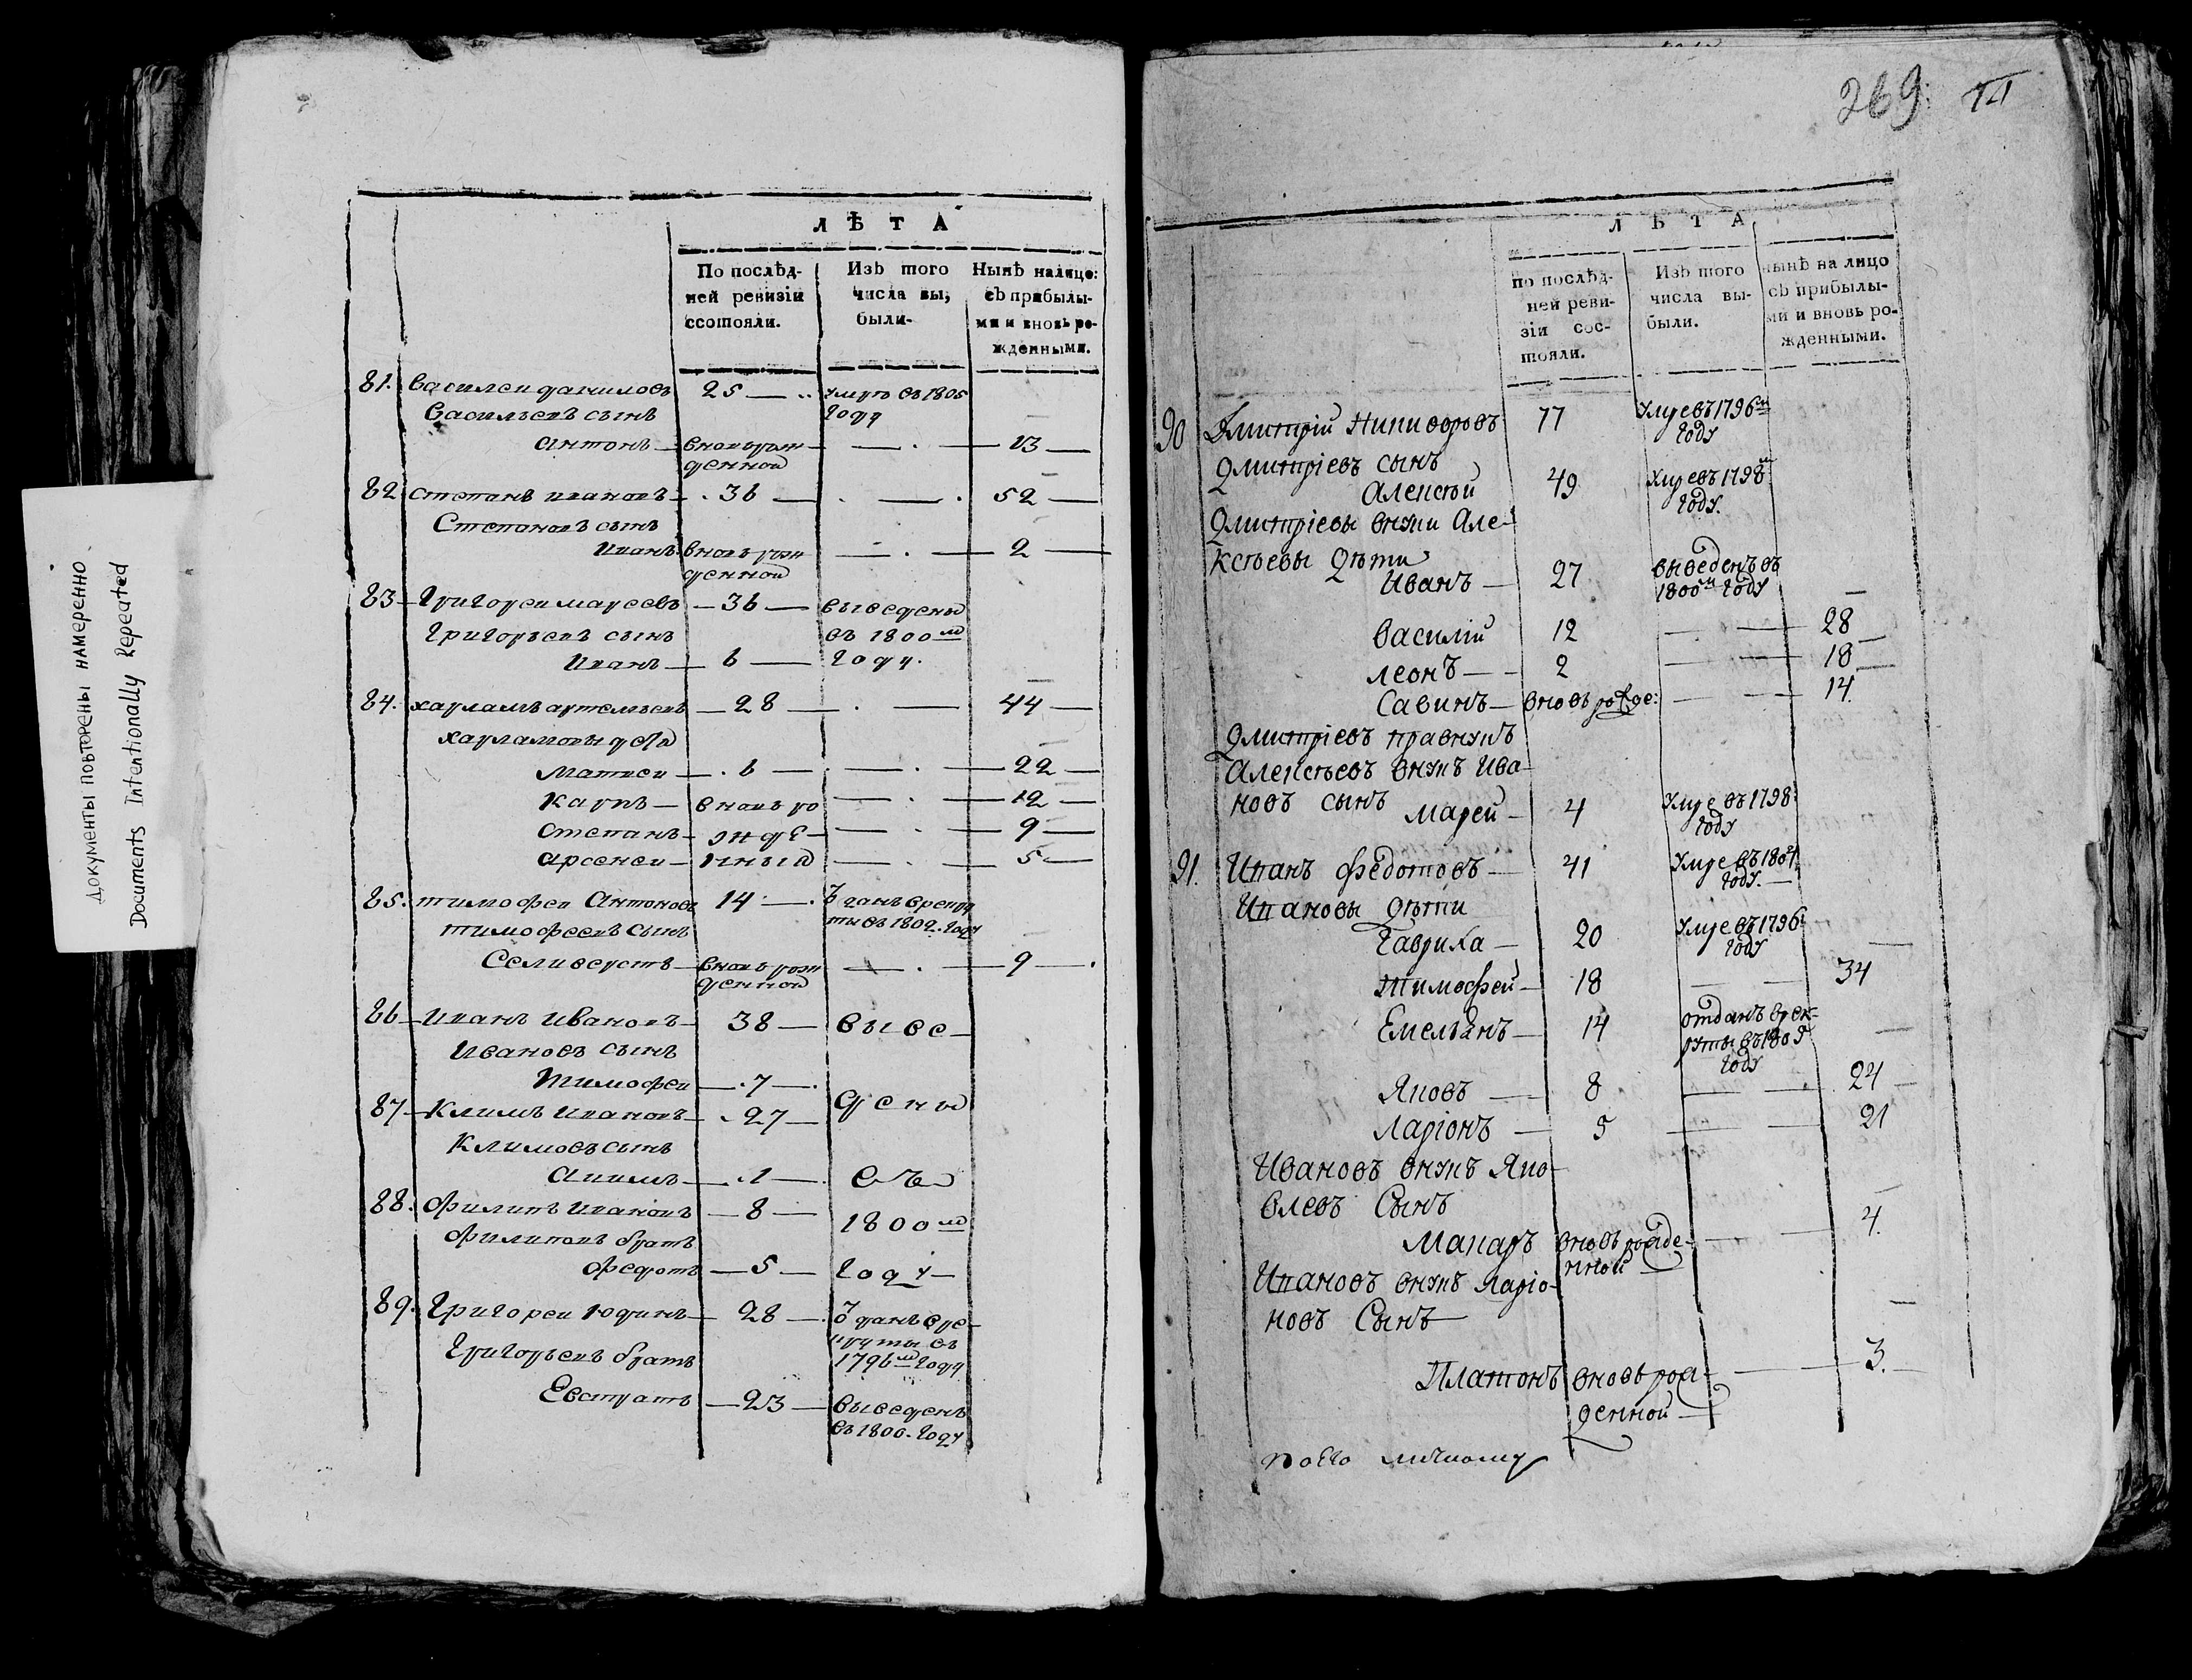 ДОКУМЕНТЫ ПОВТОРЕНЫ НАМЕРЕННО
Documents Intentionally Repeated
ЛѢТА
По послѣд-
ней ревизіи
ссотояли.
Изъ того
числа вы,
были.
Нынѣ налицо:
съ прибылы-
ми и вновь ро-
жденными.
81. Василеи даниловъ 25 умре въ 1805
Васильевъ сынъ году
антонъ вновьрож 13
денной
82 степанъ ивановъ 36 52
Степановъ сынъ
иванъ вновь рож 2
денной
83 Григореи мареевъ 36 выведены
Григорьевъ сынъ въ 1800м
иванъ 6 году.
84. харламъ артемьевъ 28 44
харламовы дети
матвеи 6 22
карпъ вновь ро 12
степанъ жде 9
арсенеи нныи 5
85. тимофеи Антоновъ 14 Ѿданъ врекру
тимофеевъ сынъ ты въ 1802. году
Селиверстъ вновь рож 9
денной
86 иванъ ивановъ 38 выве
ивановъ сынъ
тимофеи 7
87 Климъ ивановъ 27 дены
Климовъ сынъ
акимъ 1 въ
88. филипъ ивановъ 8 1800м
филиповъ братъ
федотъ 5 году
89. Григореи юдинъ 28 Ѿданъ вре
круты въ
Григорьевъ братъ 1796м году
Евстратъ 23 выведенъ
въ 1800. году
269.
ЛѢТА
по послѣд-
ней реви-
зіи сос-
тояли.
Изъ того
числа вы-
были.
нынѣ на лицо
съ прибылы-
ми и вновь ро-
жденными.
90 Дмитрій Никифоровъ 77 Умре въ 1796м
году
Дмитріевъ сынъ
Алексѣй 49 Умре въ 1798м
году.
Дмитріевы внуки Але-
ксѣевы дѣти
Иванъ 27 выведенъ въ
1800м году
Василій 12 28
леонъ 2 18
Савинъ вновь рожде: 14.
Дмитріевъ правнукъ
Алексѣевъ внукъ Ива-
новъ сынъ Марей 4 Умре въ 1798
году
91. Иванъ федотовъ 41 Умре въ 1801
году.
Ивановы дѣти
Гаврила 20 Умре въ 1796
году
Тимофей 18 34
Емельянъ 14 отданъ врек-
руты въ 1805
году
Яковъ 8 24
Ларіонъ 5 21
Ивановъ внукъ Яко-
влевъ Сынъ
Макаръ вновь рожде- 4.
нной
Ивановъ внукъ Ларіо-
новъ Сынъ
Платонъ вновь рож- 3.
денной
поего личному